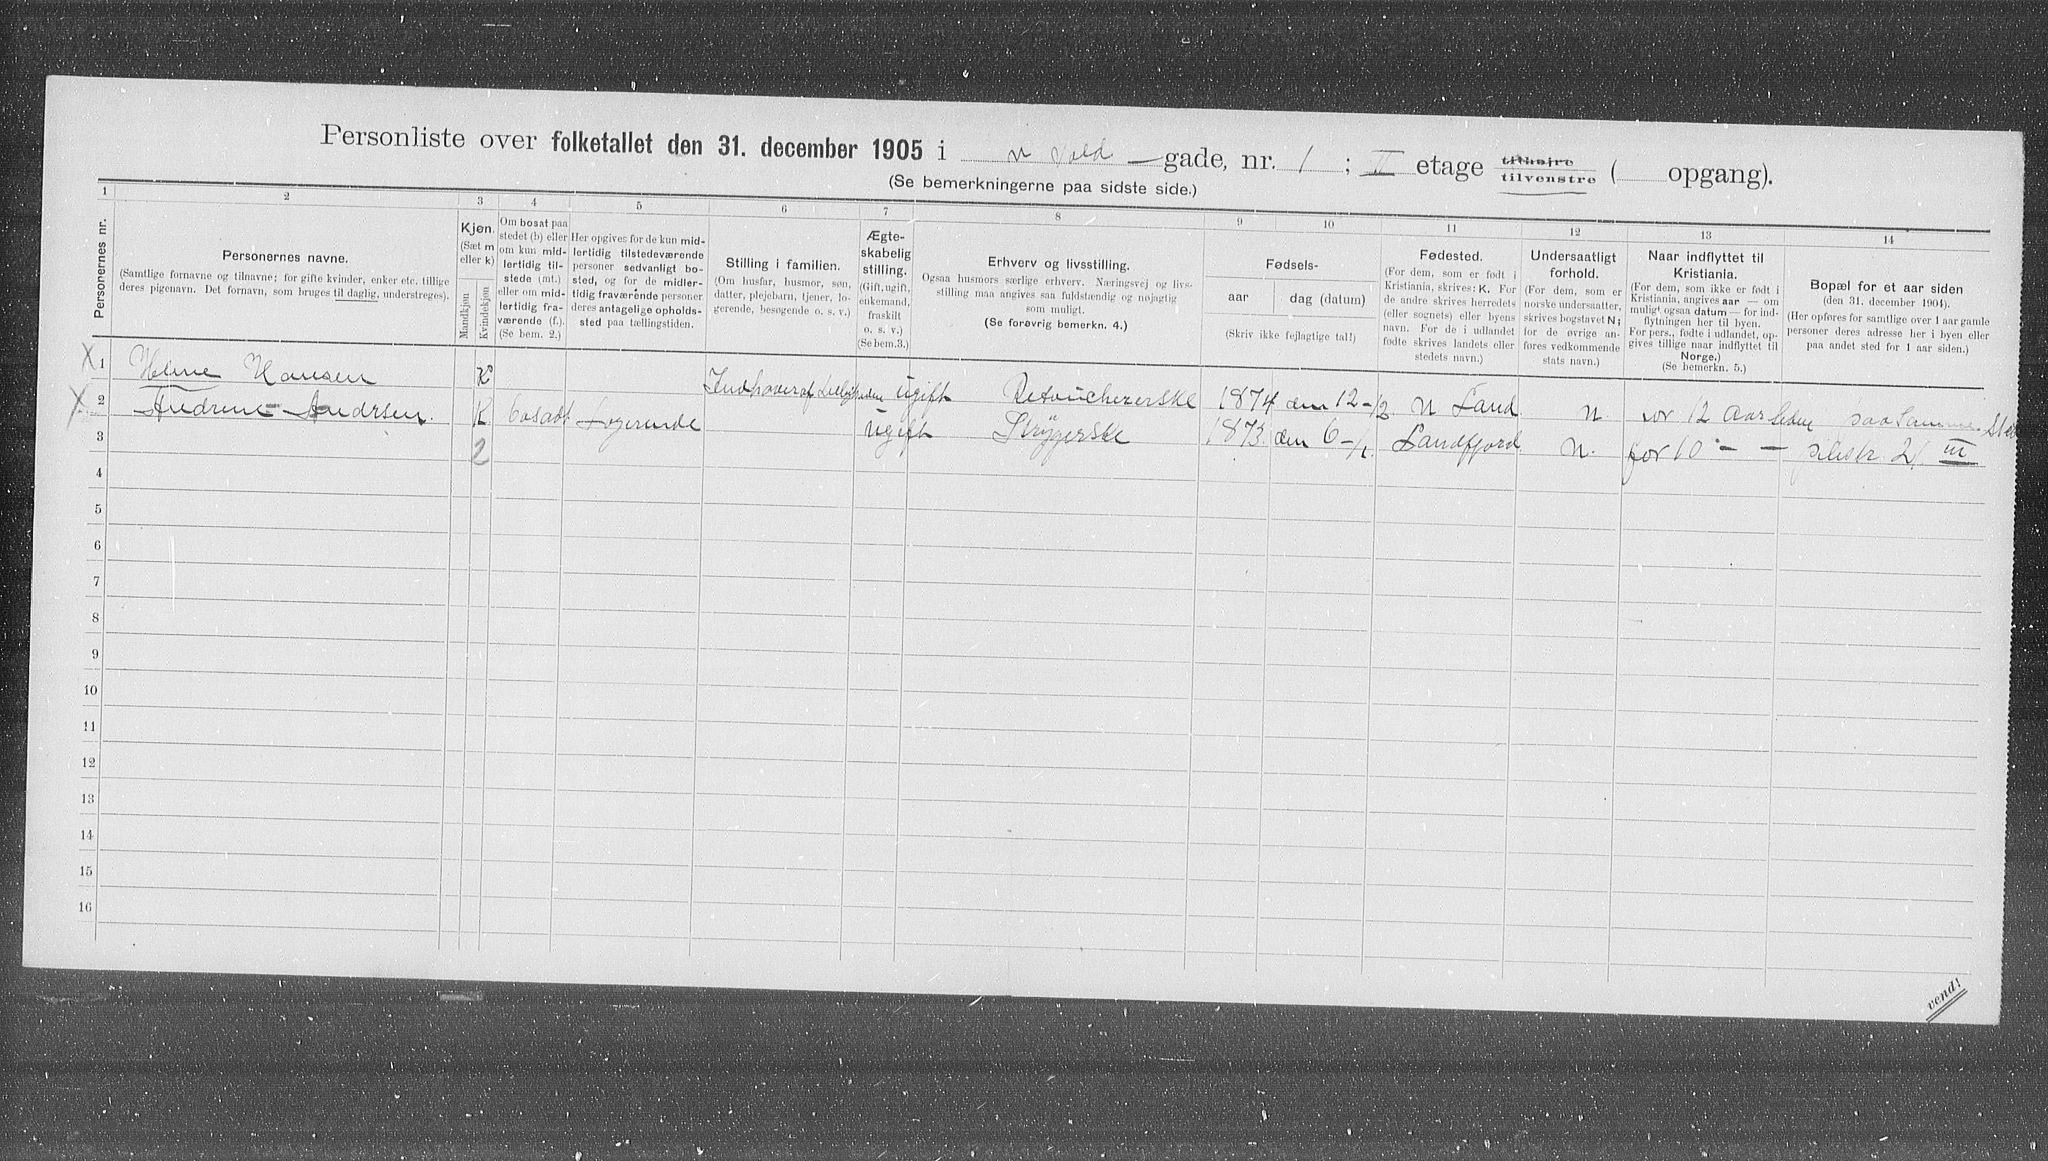 Personliste over folketallet den 31. december 1905 i N Vold gade, nr. 1 ; II etage tilhøire tilvenstre ( opgang).
(Se bemerkningerne paa sidste side.)
1 2 3 4 5 6 7 8 9 10 11 12 13 14
Personernes nr.
Personernes navne.
(Samtlige fornavne og tilnavne; for gifte kvinder, enker etc. tillige
deres pigenavn. Det fornavn, som bruges til daglig, understreges).
Kjøn.
(Sæt m
eller k)
Mandkjøn
Kvindekjøn
Om bosat paa
stedet (b) eller
om kun mid-
lertidig til-
stede (mt.)
eller om mid-
lertidig fra-
værende (f.).
(Se bem. 2.)
Her opgives for de kun mid-
lertidig tilstedeværende
personer sedvanligt bo-
sted, og for de midler-
tidig fraværende personer
deres antagelige opholds-
sted paa tællingstiden.
Stilling i familien.
(Om husfar, husmor, søn,
datter, plejebarn, tjener, lo-
gerende, besøgende o. s. v.)
Ægte-
skabelig
stilling.
(Gift, ugift,
enkemand,
fraskilt
o. s. v.)
(Se bem. 3.)
Erhverv og livsstilling.
Ogsaa husmors særlige erhverv. Næringsvej og livs-
stilling maa angives saa fuldstændig og nøjagtig
som muligt.
(Se forøvrig bemerkn. 4.)
Fødsels-
aar
dag (datum)
(Skriv ikke fejlagtige tal!)
Fødested.
(For dem, som er født i
Kristiania, skrives: K. For
de andre skrives herredets
(eller sognets) eller byens
navn. For de i udlandet
fødte skrives landets eller
stedets navn.)
Undersaatligt
forhold.
(For dem, som er
norske undersaatter,
skrives bogstavet N;
for de øvrige an-
føres vedkommende
stats navn.)
Naar indflyttet til
Kristiania.
(For dem, som ikke er født i
Kristiania, angives aar — om
muligt ogsaa datum — for ind-
flytningen her til byen.
For pers., fødte i udlandet, op-
gives tillige naar indflyttet til
Norge.)
(Se bemerkn. 5.)
Bopæl for et aar siden
(den 31. december 1904).
(Her opføres for samtlige over 1 aar gamle
personer deres adresse her i byen eller
paa andet sted for 1 aar siden.)
X 1 Helene Hansen K Indhaver af Leiligheden ugift Retoucherske 1874 den 12-1/2 N Land N. for 12 aar siden paa samme Sted
X 2 Andrine Andrsen. K bosadt Logerende ugift Strygerske 1873 den 6-1/1 Sandfjord N. for 10 — — Pilestr. 21 III
3 2
4
5
6
7
8
9
10
11
12
13
14
15
16
vend!